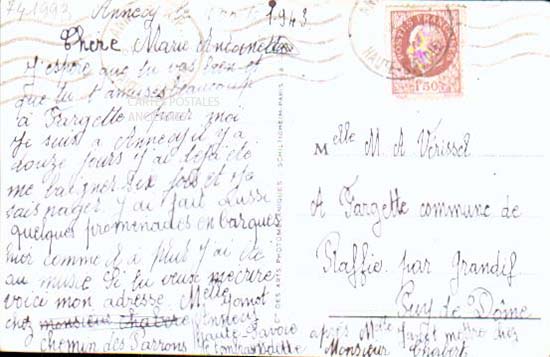 741993
Annecy le 1943
Chère Marie Antoinette
J'espère que tu vas bien et
que tu t'amuses beaucoup
à Fargette pour moi
Je suis a Annecy il y a
douze jours j'ai déjà été
me baigner six fois et je
sais nager j'ai fait aussi
quelques promenades en barques
hier comme il a plut j'ai été
au musée Si tu veux m'écrire
voici mon adresse Melle
chez monsieur Chabert Annecy
Haute-Savoie
chemin des
CARTES POSTALES
ANCIENNES
DES ARTS PHOTOMÉCANIQUES SCHILTIGHEIM-PARIS
POSTES FRANÇAISES
1F50
HAUTE-
Melle M A Vérissel
A Fargette commune de
par Grandif
Puy de Dôme
après
Monsieur Chabert